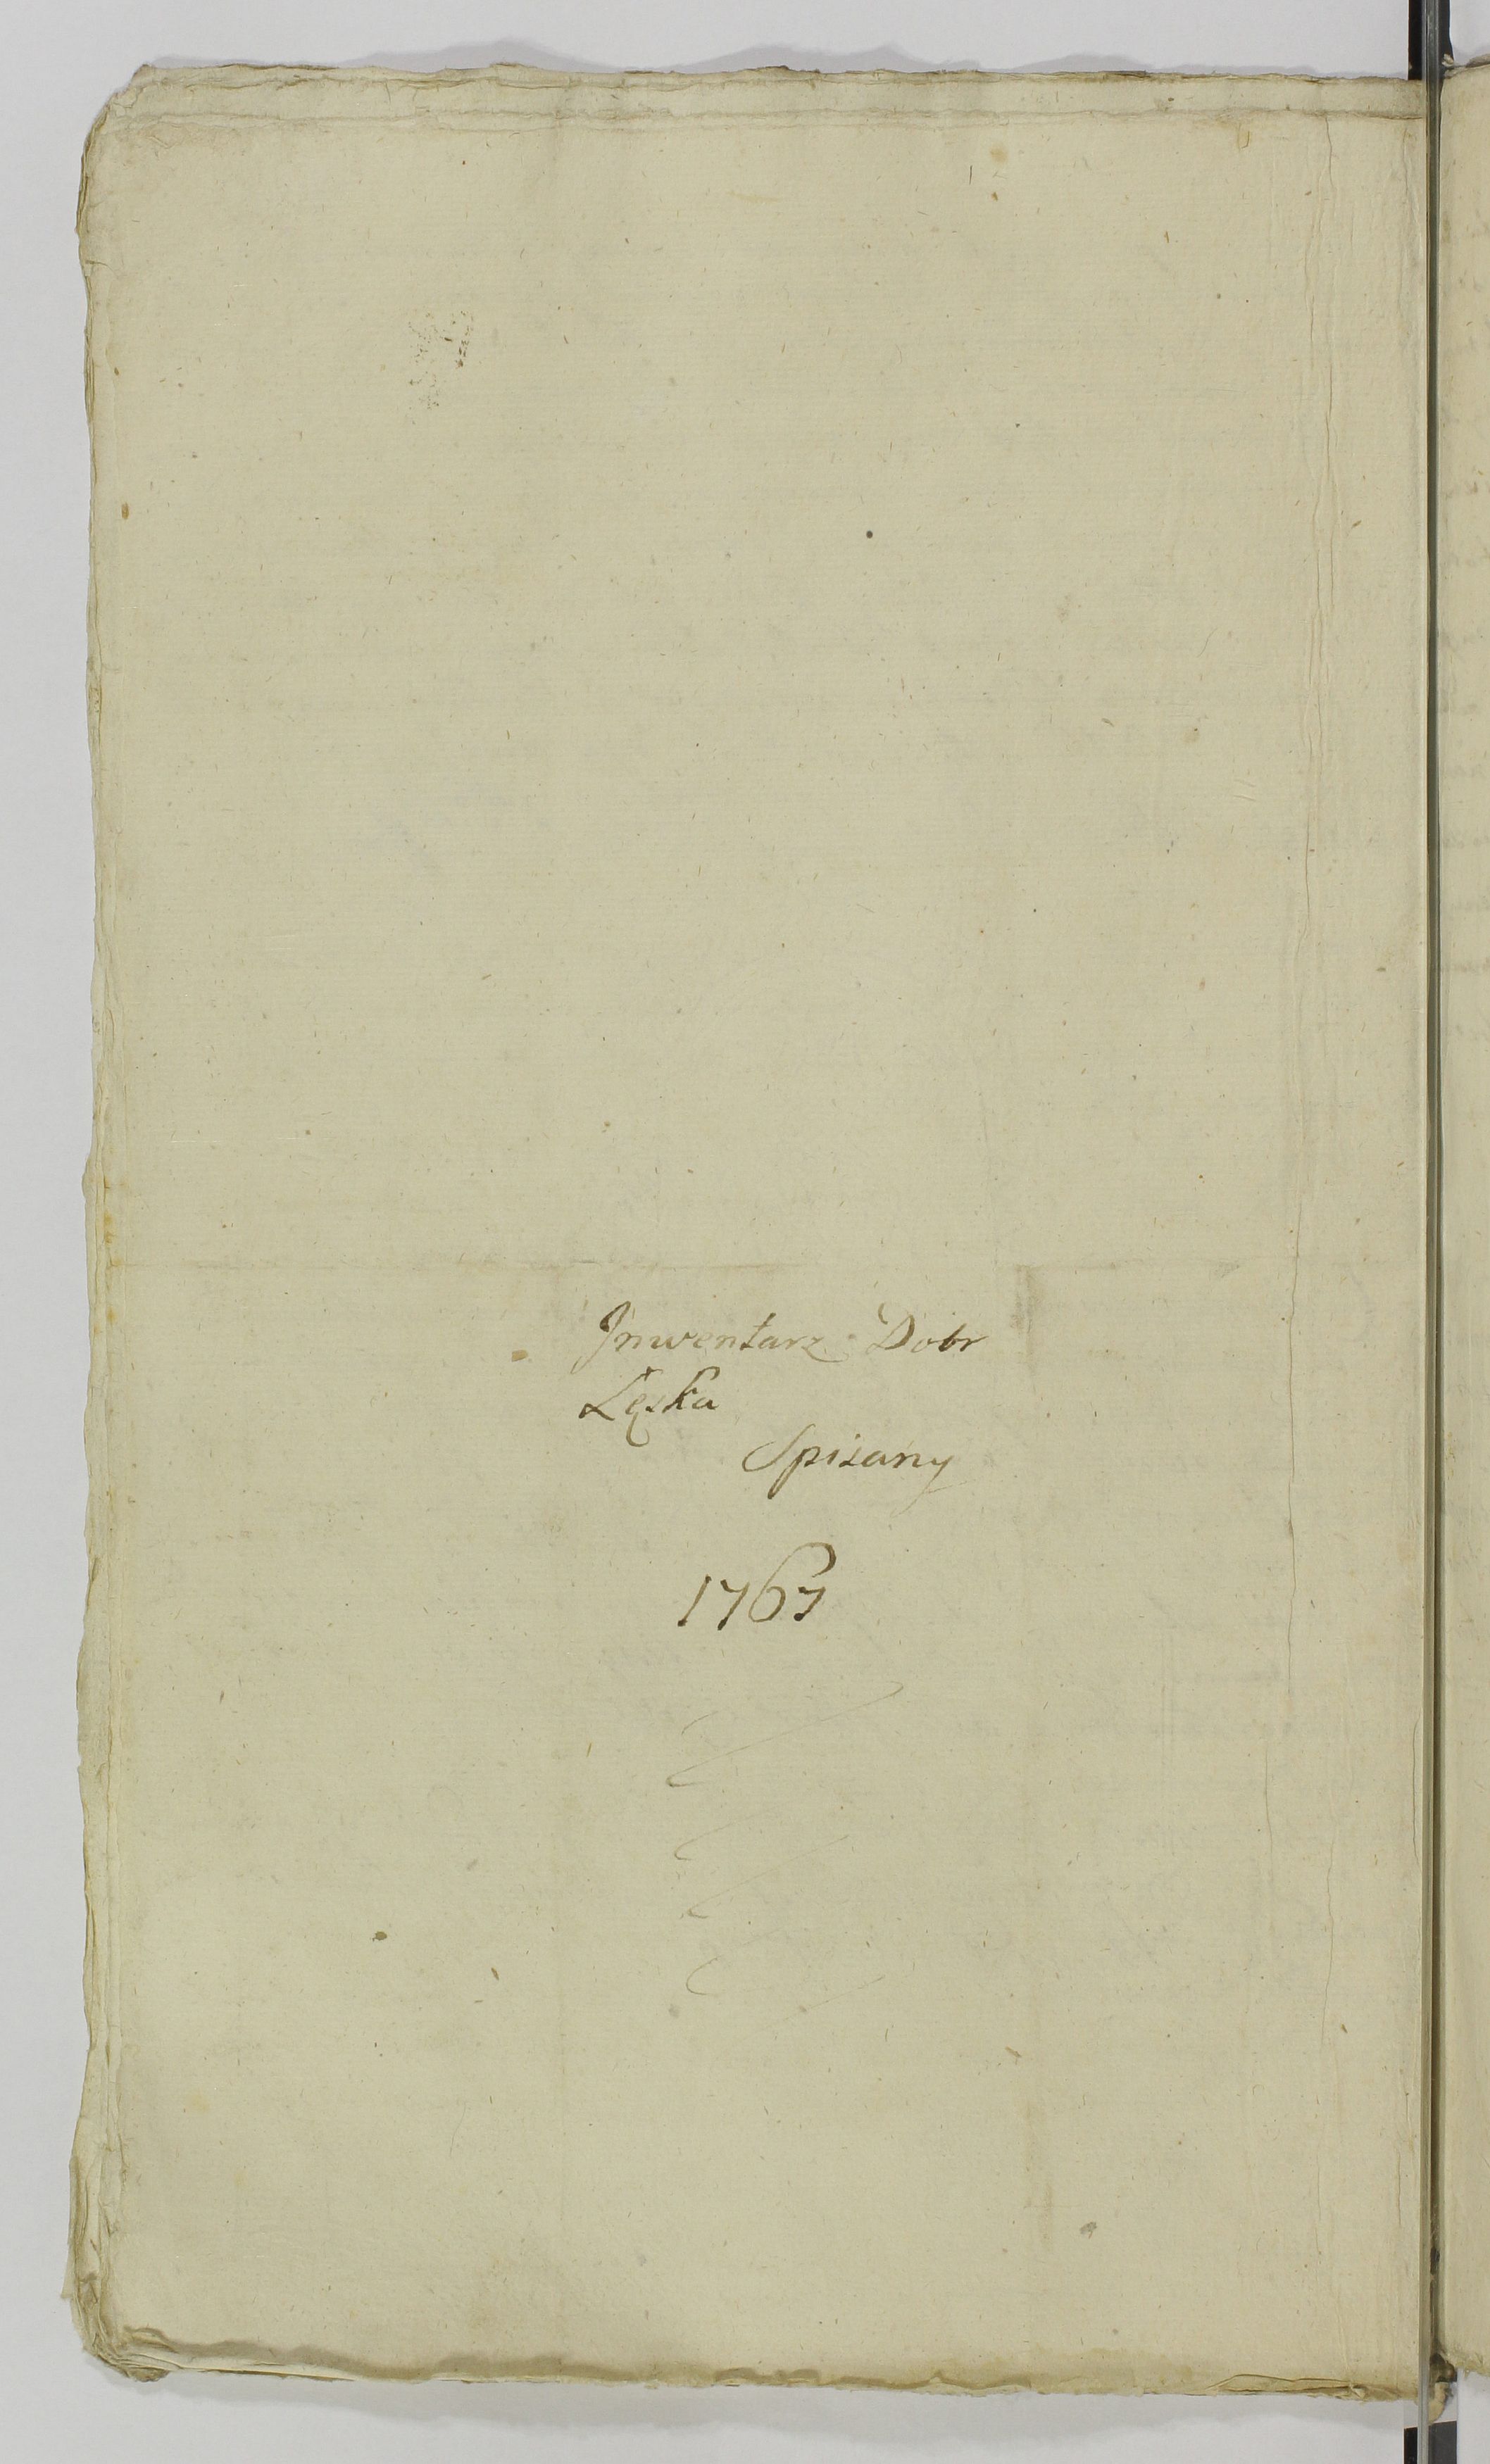 Inwentarz Dobr
Lęska
Spisany
1767